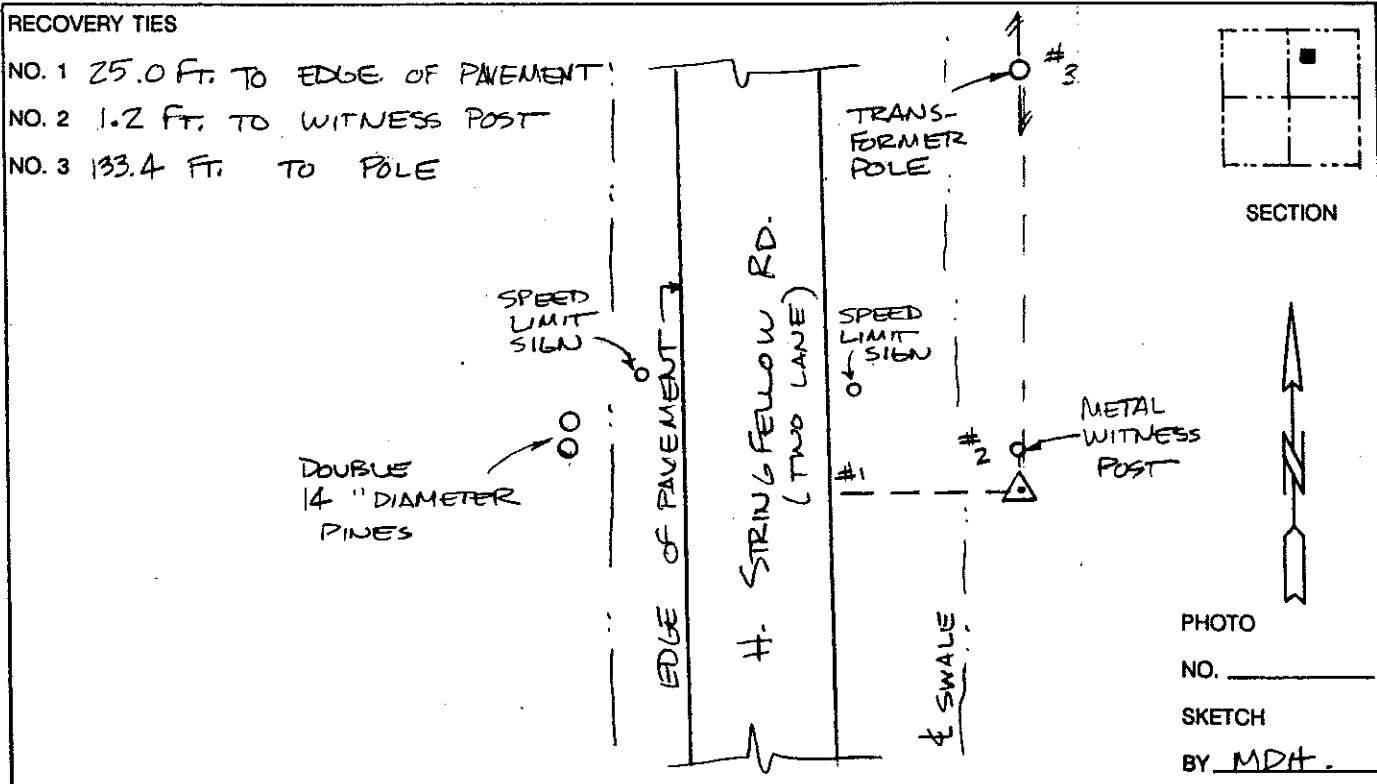 RECOVERY TIES
NO. 1 25.0 FT. TO EDGE OF PAVEMENT
NO. 2 1.2 FT. TO WITNESS POST
NO. 3 133.4 FT. TO POLE
#3
TRANS-
FORMER
POLE
SECTION
SPEED
LIMIT
SIGN
EDGE OF PAVEMENT
H. STRINGFELLOW RD.
(TWO LANE)
SPEED
LIMIT
SIGN
DOUBLE
14" DIAMETER
PINES
#1
#2
METAL
WITNESS
POST
N
℄ SWALE
PHOTO
NO.
SKETCH
BY MDH.